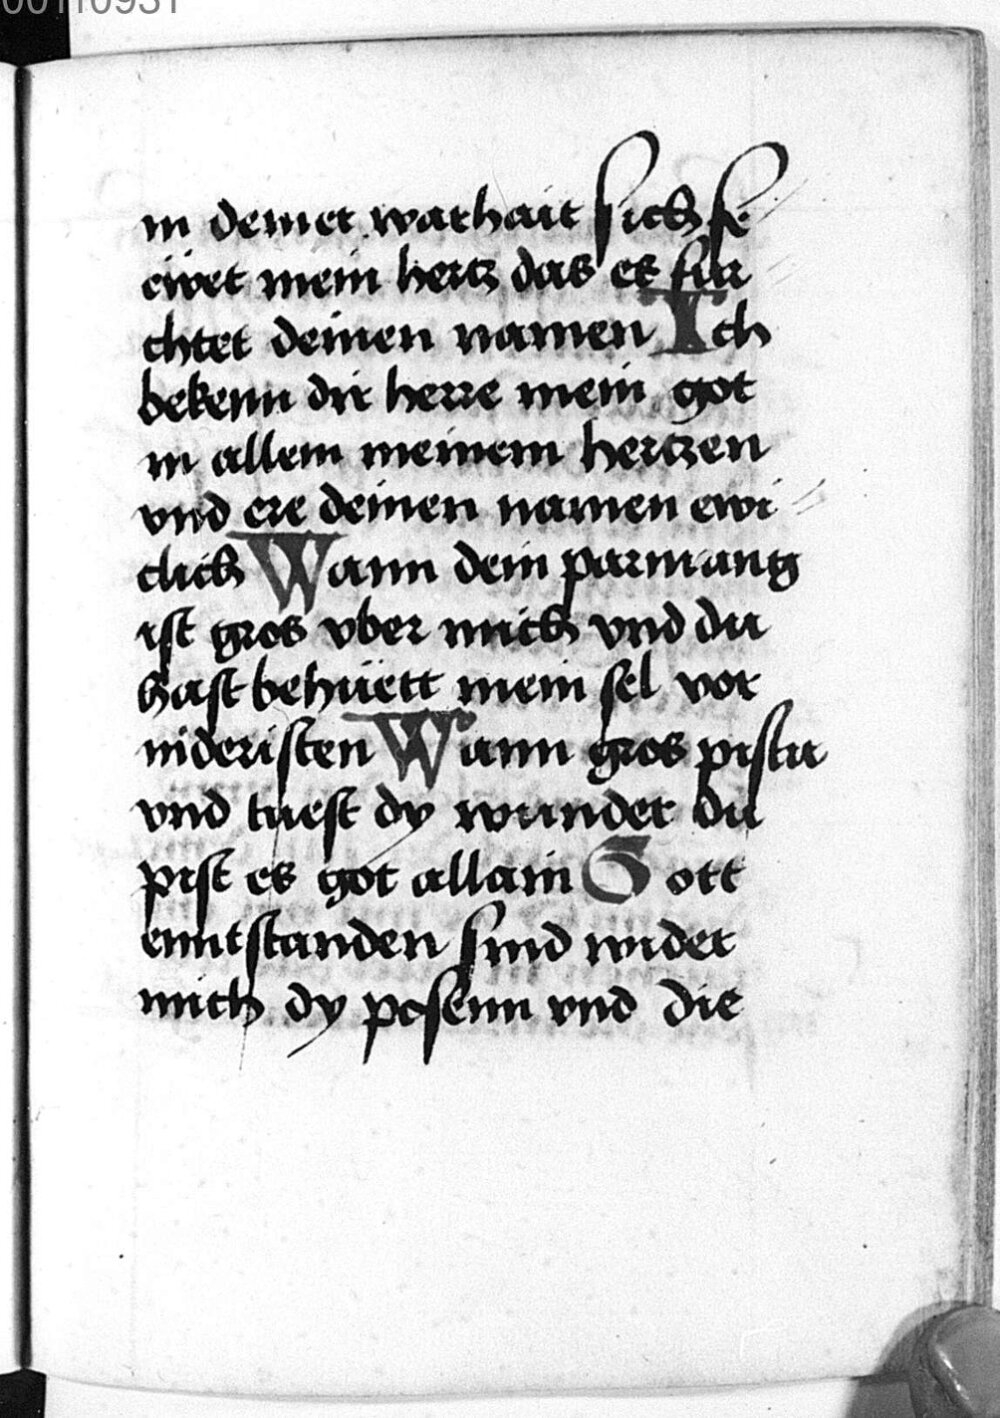 00110931
in deiner warhait sich fre
ẅet mein hertz das es fur
chtet deinen namen Ich
bekenn dir herre mein got
in allem meinem hertzen
vnd ere deinen namen ewi
clich Wann dein parmung
ist gros vber mich vnd du
hast behüett mein sel vor
nideristen Wann gros pistu
vnd tuest dy wunder du
pist es got allain Gott
enntstanden sind wider
mich dy posenn vnd die